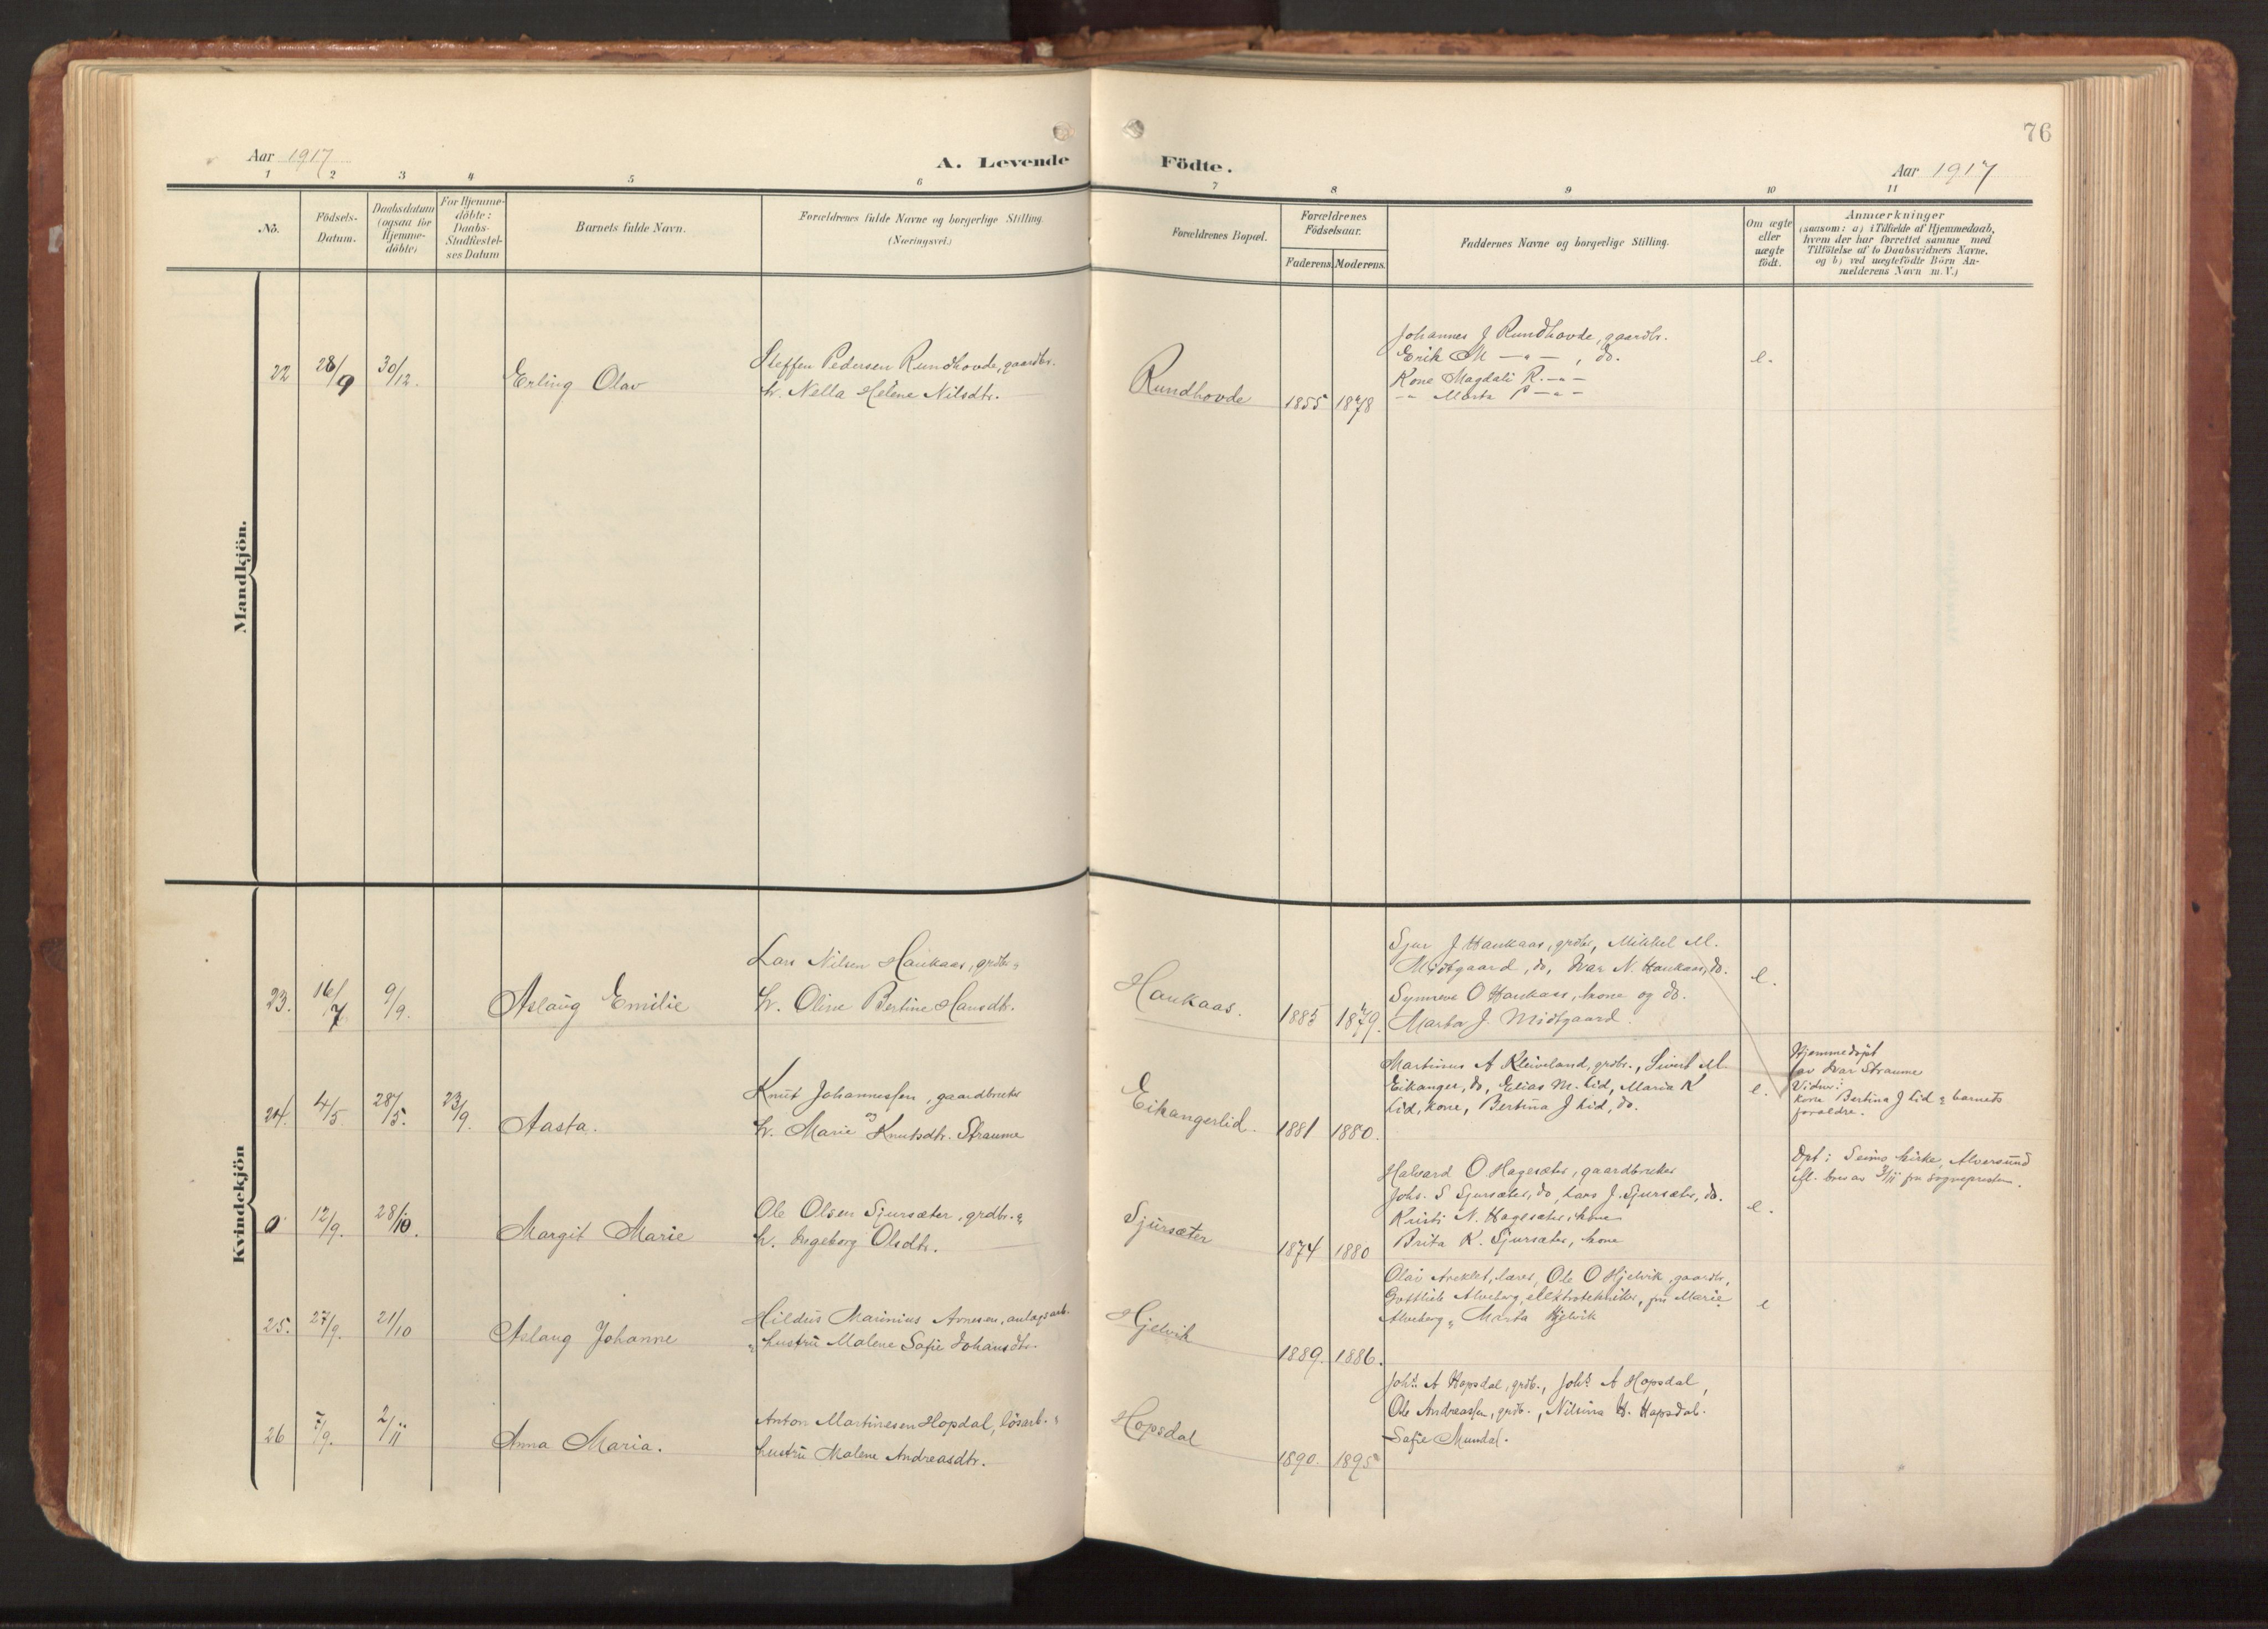 76
Aar 1917
A. Levende Födte.
Aar 1917
1 2 3 4 5 6 7 8 9 10 11
No.
Födsels-
Datum.
Daabsdatum
(ogsaa for
Hjemme-
döbte)
For Hjemme-
döbte:
Daabs-
Stadfæstel-
ses Datum
Barnets fulde Navn.
Forældrenes fulde Navne og borgerlige Stilling.
(Næringsvei.)
Forældrenes Bopæl.
Forældrenes
Födselsaar.
Faderens. Moderens.
Faddernes Navne og borgerlige Stilling.
Om ægte
eller
uægte
födt.
Anmærkninger
(saasom: a) i Tilfælde af Hjemmedaab,
hvem der har forrettet samme med
Tilföielse af to Daabsvidners Navne.
og b) ved uægtefödte Börn An-
melderens Navn m. V.)
Mandkjön.
22
28/9
30/12.
Erling Olav
Steffen Pedersen Rundhovde, gaardbr.
h. Nella Helene Nilsdtr.
Rundhovde
1855 1878
Johannes J Rundhovde, gaardbr.
Erik M —"—, do.
Kone Magdali R. —"—
—"— Marta P —"—
e.
Kvindekjön
23.
16/7
9/9.
Aslaug Emilie
Lars Nilsen Haukaas, grdbr. "
h. Oline Bertine Hansdtr.
Haukaas.
1885 1879.
Sjur J Haukaas, grdbr, Mikkel M.
Midtgaard, do, Ivar N. Haukaas, do.
Synneve O Haukaas, kone og do.
Marta J. Midtgaard.
e.
24.
4/5
28/5.
23/9.
Aasta.
Knut Johannessen, gaardbruker
og
h. Marie Knutsdtr. Straume
Eikangerlid.
1881 1880.
Martinus A Kleiveland, grdbr., Sivert M.
Eikanger, do, Elias M. Lid, Maria K
Lid, kone, Bertina J Lid, do.
e.
Hjemmedöpt
av Ivar Straume
Vidner:
kone Bertina J Lid " barnets
foreldre.
0
12/9.
28/10.
Margit Marie
Ole Olsen Sjursæter, grdbr. "
h. Ingeborg Olsdtr.
Sjursæter
1874 1880
Halvard O Hagesæter, gaardbruker
Johs. S Sjursæter, do, Lars J. Sjursæter, do.
Kristi N. Hagesæter, kone
Brita K. Sjursæter, kone
e.
Dpt i Seims kirke, Alversund
ifl. brev av 3/11 fra sogneprestem.
25.
27/9.
21/10
Aslaug Johanne
Hildus Marinius Arnesen, anlægsarb.
" hustru Malene Sofie Johansdtr.
Hjelvik
1889. 1886.
Olai, lærer, Ole O Hjelvik, gaardbr,
Gottlieb Alveberg, elektrotekniker, fru Marie
Alveberg " Marta Hjelvik
e
26
7/9.
2/11
Anna Maria.
Anton Martinesen Hopdal, lösarb. "
hustru Malene Andreasdtr.
Hopsdal
1890. 1895
Johs A Hopsdal, grdb., Johs A Hopsdal,
Ole Andreassen, grdb., Nilsina H. Hopsdal.
Sofie Mundal.